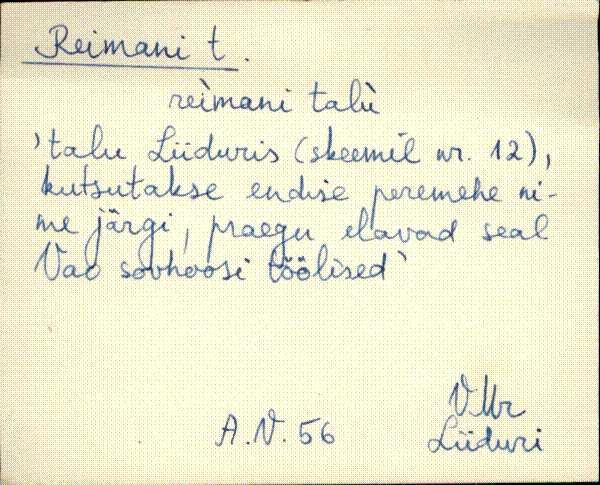 Reimani t.
reìmani talù
'talu Liiduris (skeemil nr. 12),
kutsutakse endise peremehe ni-
me järgi, praegu elavad seal
Vao sovhoosi töölised'
V.Mr
A.V. 56 Liiduri